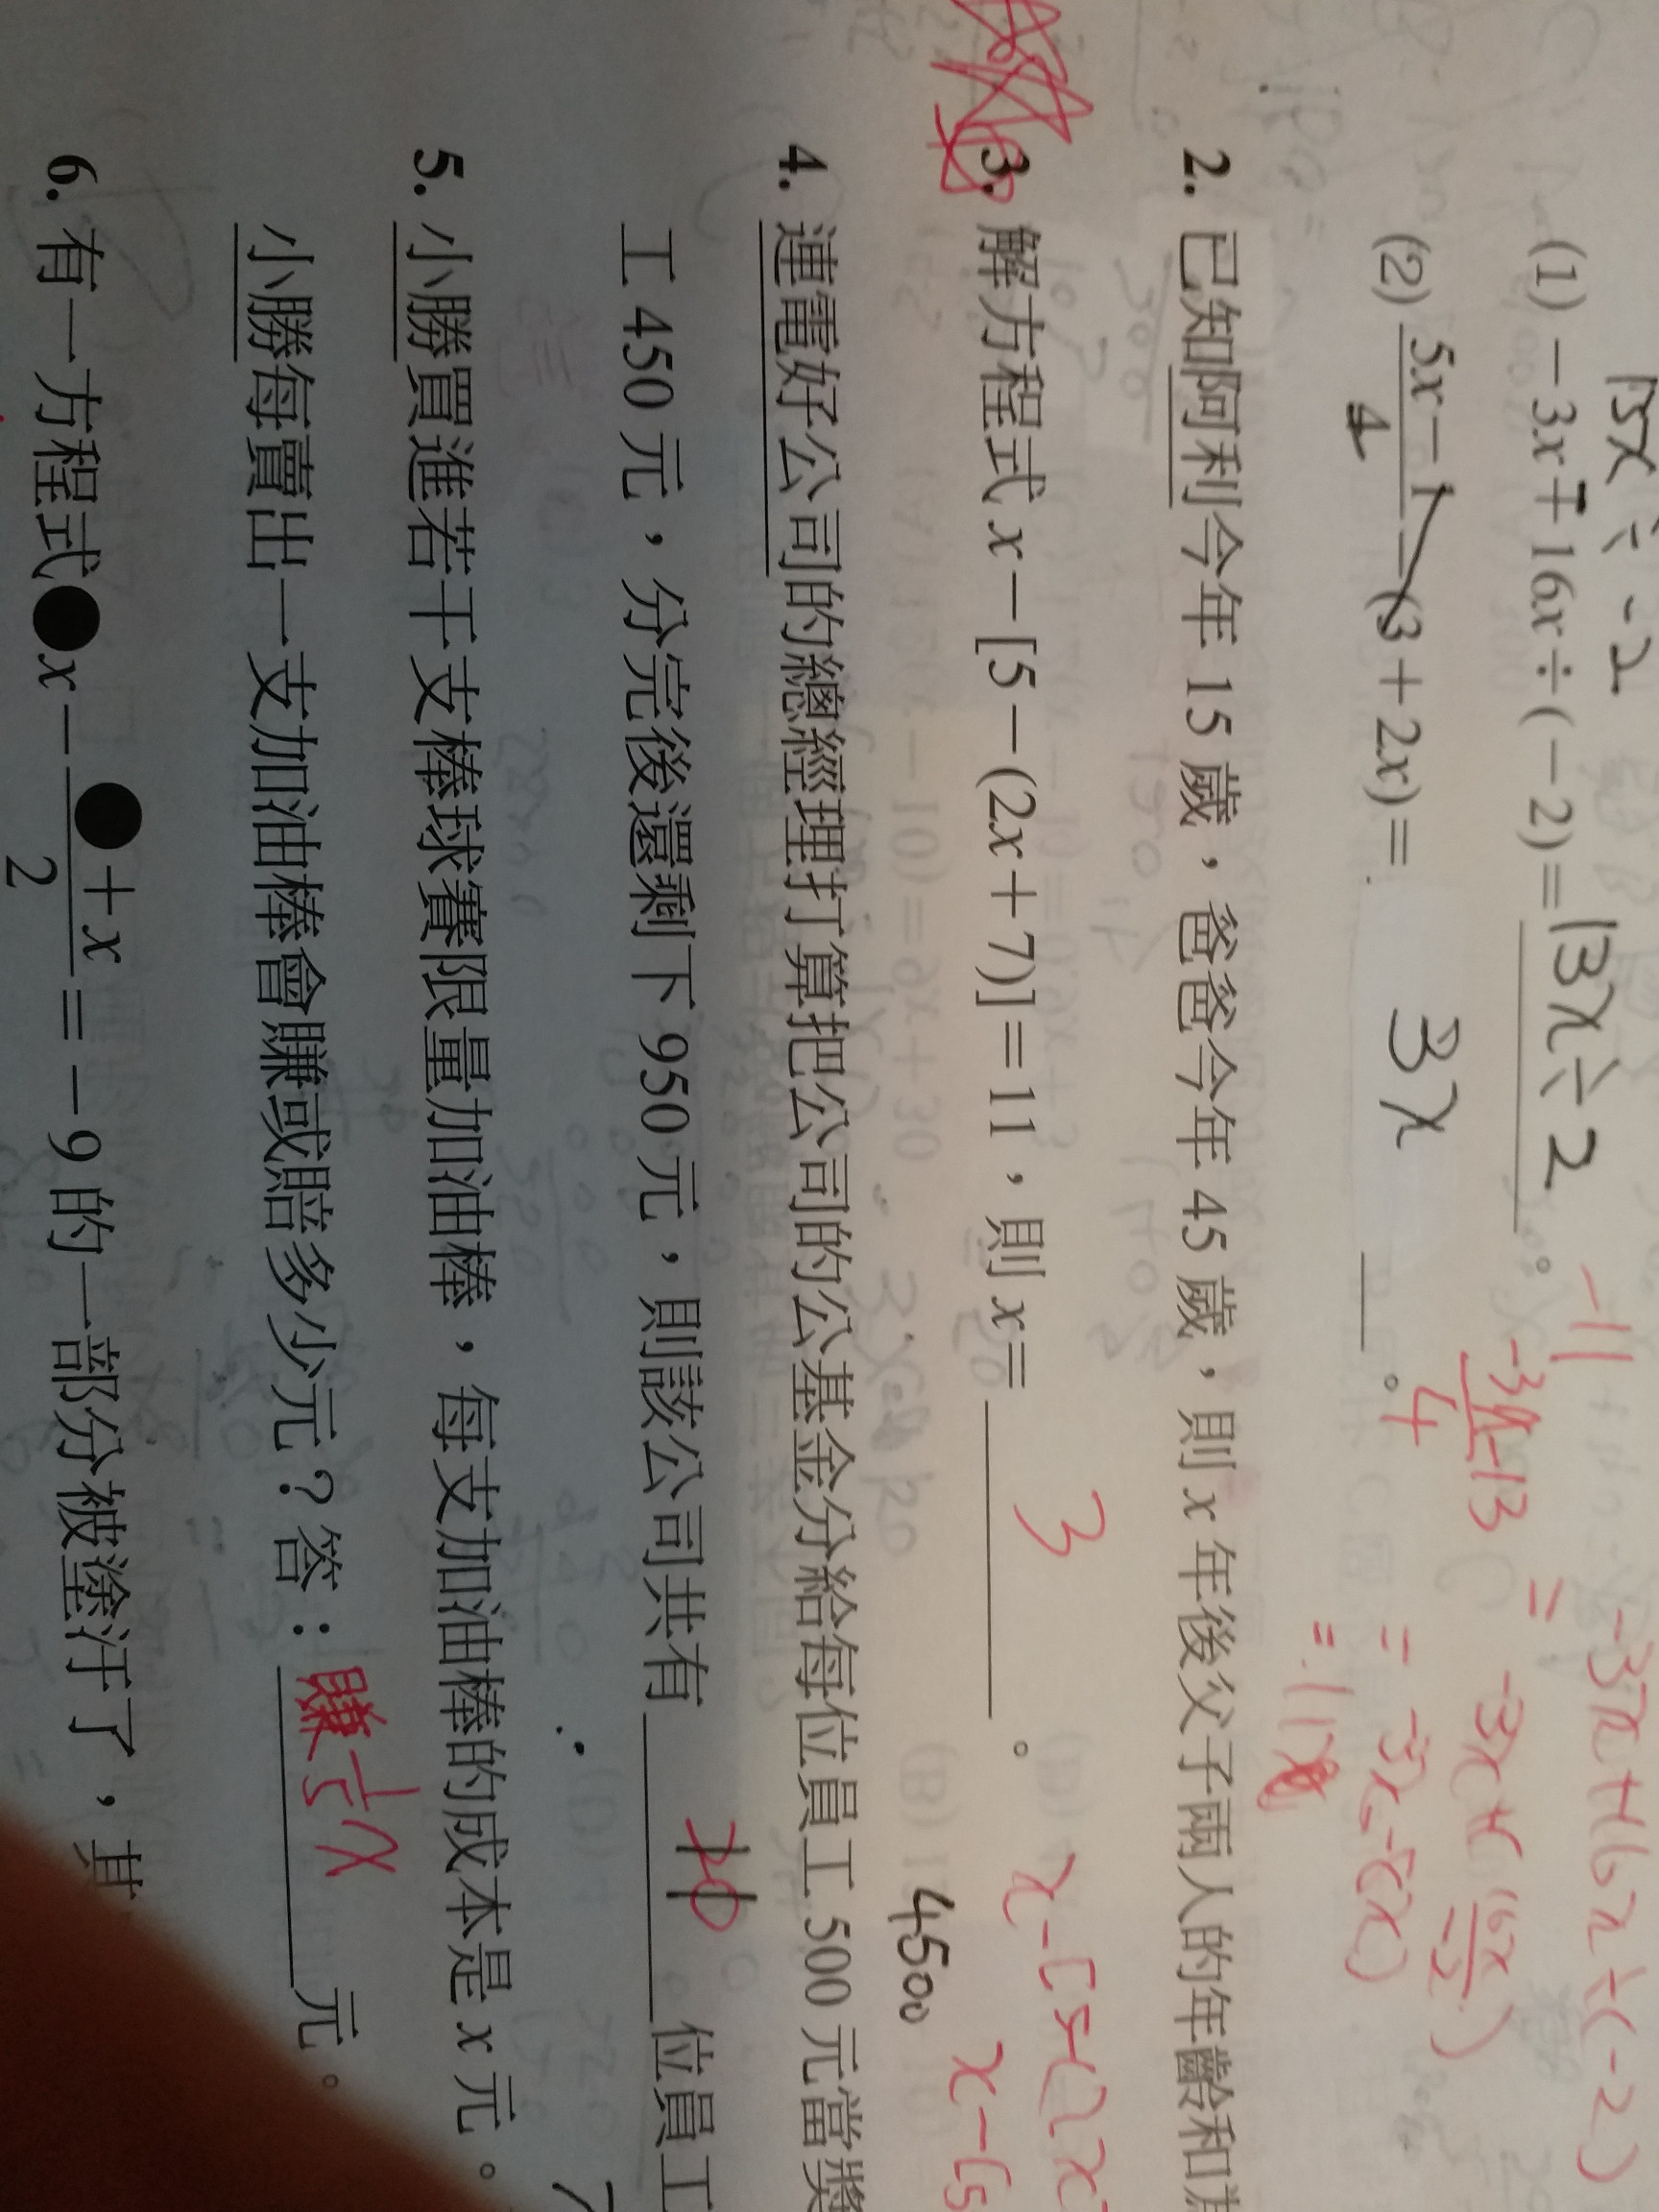 15x÷-2
(1) -3x+16x÷(-2)=13x÷2。
-11
-3x+16x÷(-2)
(2) 5x-1/4-(3+2x)= 3x 。
-3x-13
4
= -3x+(16x/-2)
= -3x-8x
= -11x
2. 已知阿利今年 15 歲,爸爸今年 45 歲,則 x 年後父子兩人的年齡和為
3. 解方程式 x-[5-(2x+7)]=11,則 x= 3 。
x-[5-(2x
x-[5
4500
4. 連電好公司的總經理打算把公司的公基金分給每位員工 500 元當獎
工 450 元,分完後還剩下 950 元,則該公司共有 20 位員工
5. 小勝買進若干支棒球賽限量加油棒,每支加油棒的成本是 x 元。
小勝每賣出一支加油棒會賺或賠多少元?答:賺1/5x元。
6. 有一方程式●x-●+x/2=-9 的一部分被塗汙了,其